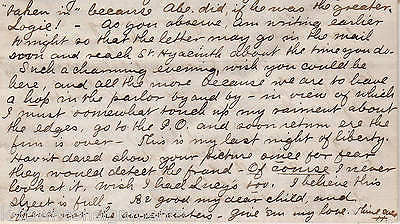 "taken it" because Abe. did, if he was the greater.
Logic! — As you observe am writing earlier
to night so that the letter may go in the mail
soon and reach St Hyacinth about the time you do.
Such a charming evening, wish you could be
here, and all the more because we are to have
a hop in the parlor by and by — in view of which
I must somewhat touch up my raiment about
the edges, go to the P.O. and soon return ere the
fun is over — This is my last night of liberty.
Hav'nt dared show your picture since for fear
they would detect the fraud — Of course I never
look at it. Wish I had Lucy's too. I believe this
sheet is full. Be good my dear child, and
mind not the sisters — give 'em my love. Thine